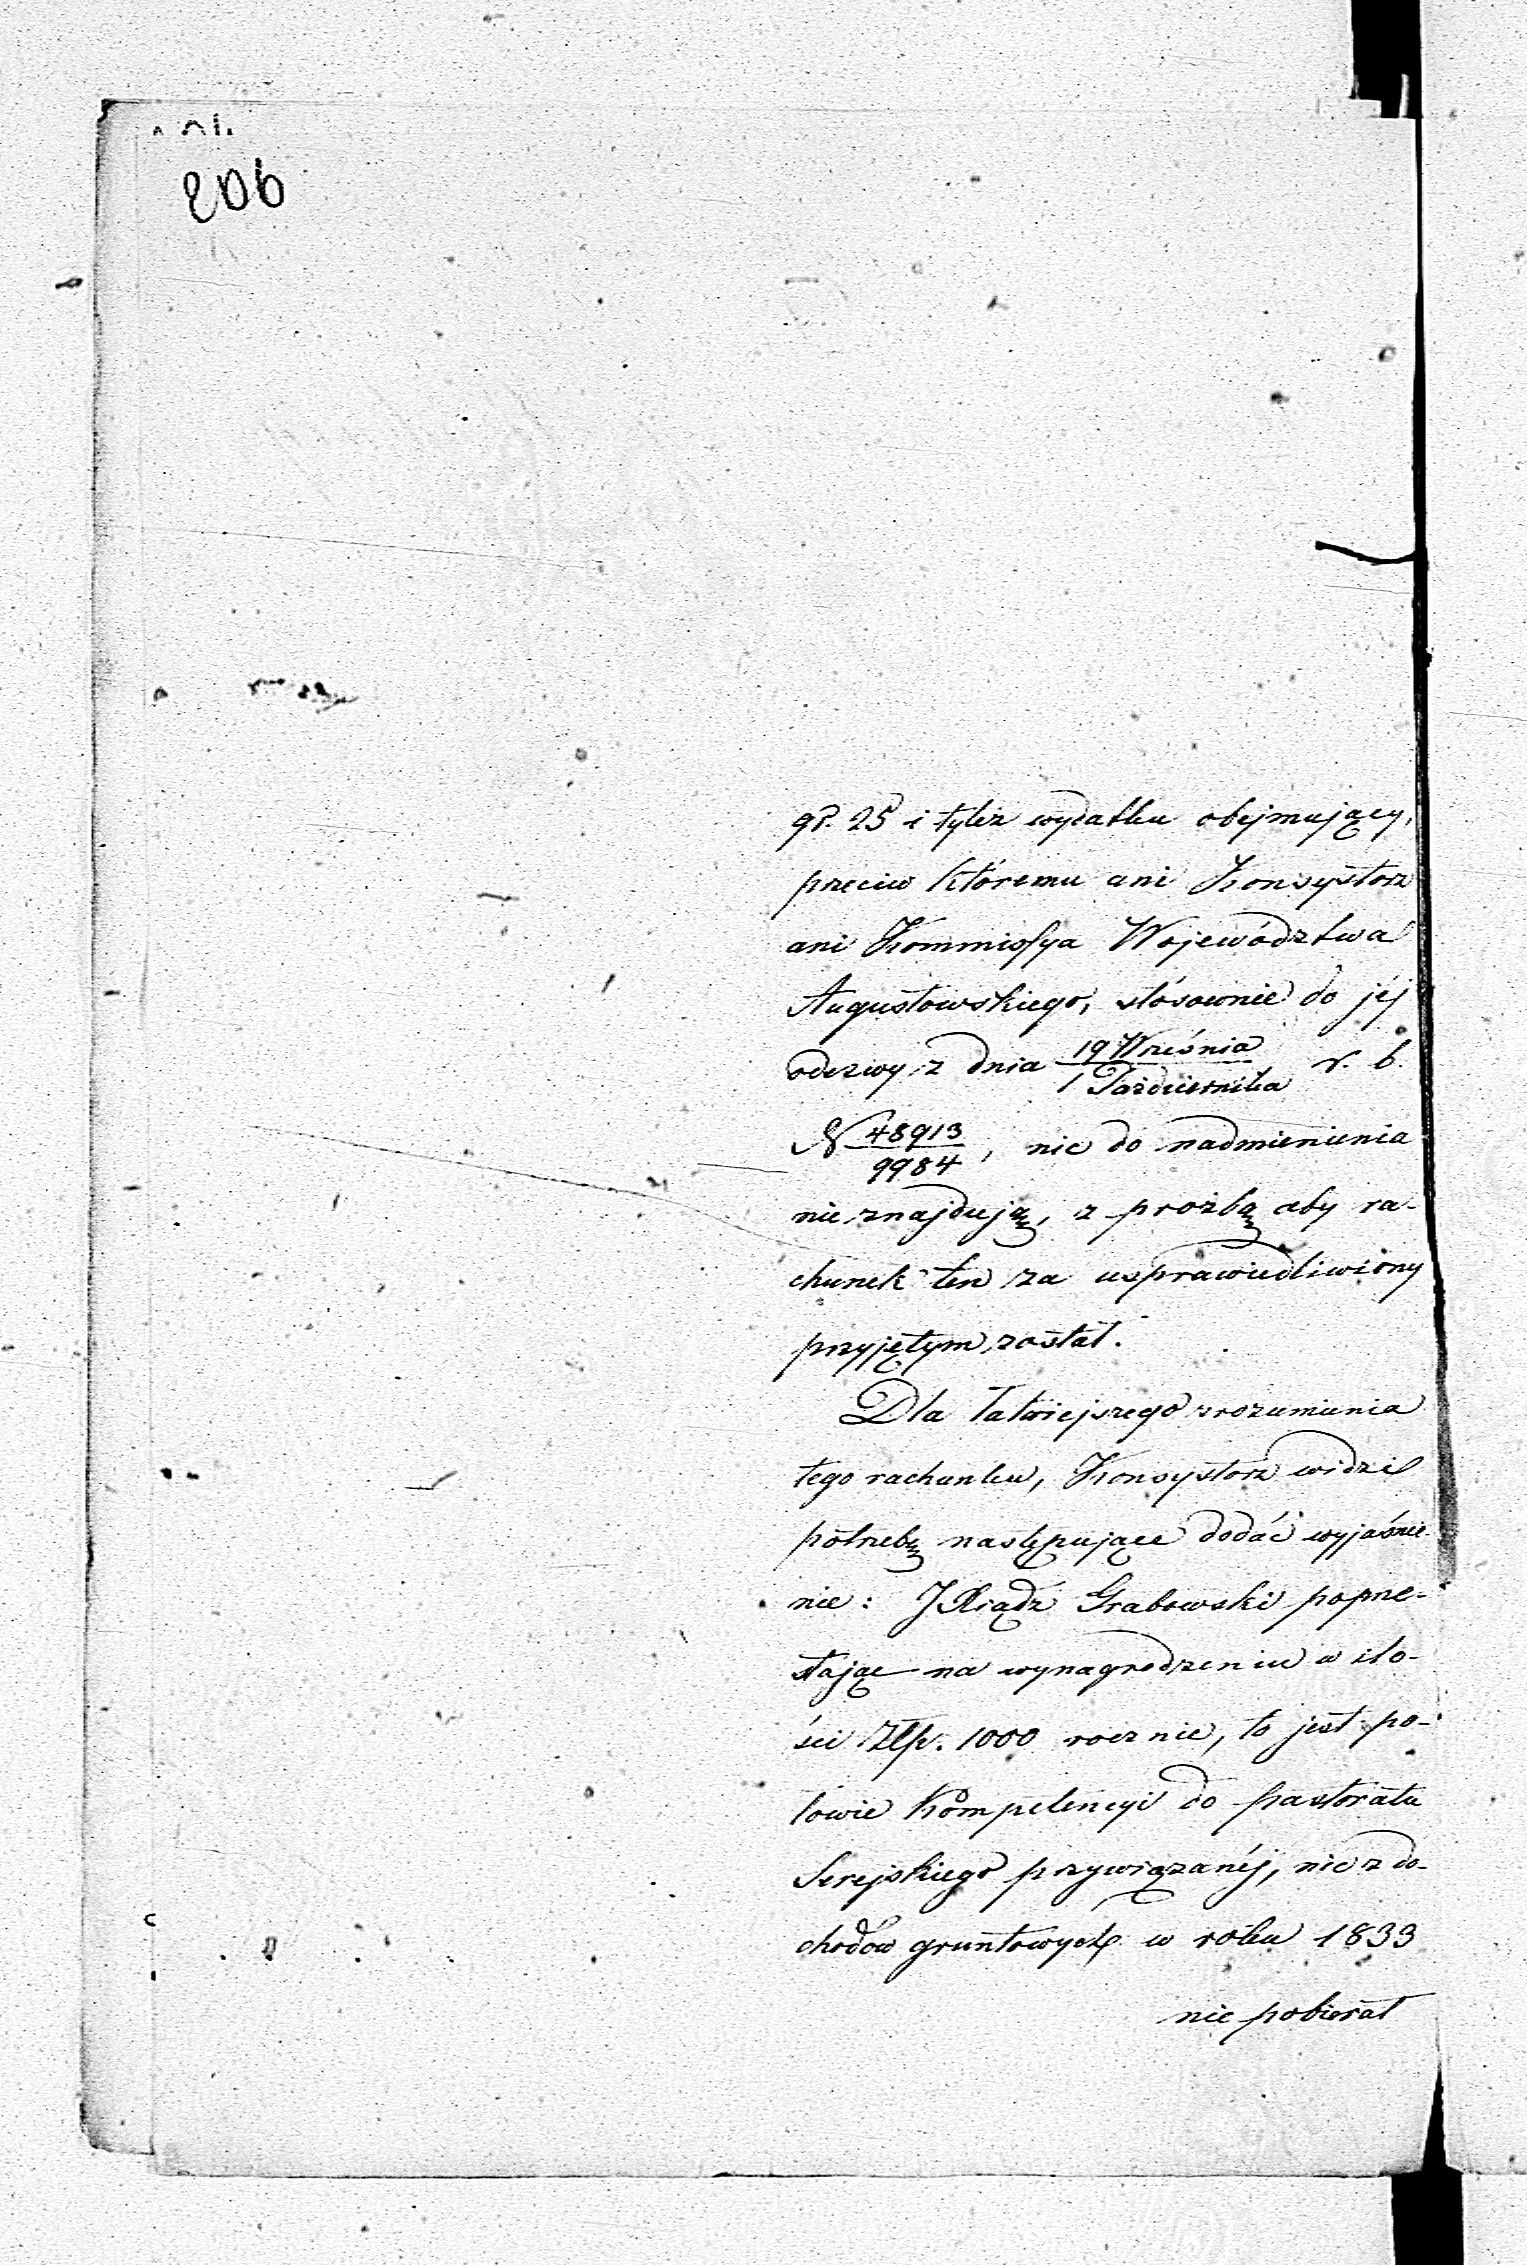 206
gr. 25 i tyleż wydatku obejmujący,
przeciw któremu ani Konsystorz
ani Kommissya Województwa
Augustowskiego, stósownie do jéj
odezwy z dnia 19 Września / 1 Października r. b.
N 48913 / 9984, nic do nadmienienia
nie znajdują, z proźbą aby ra-
chunek ten za usprawiedliwiony
przyjętym został.
Dla łatwiejszego zrozumienia
tego rachunku, Konsystorz widzi
potrzebę następujące dodać wyjaśnie-
nie: JXiądz Grabowski poprze-
stając na wynagrodzeniu w ilo-
ści Złp. 1000 rocznie, to jest po-
łowie kompetencyi do pastoratu
Serejskiego przywiązanéj, nic z do-
chodów gruntowych w roku 1833
nie pobierał